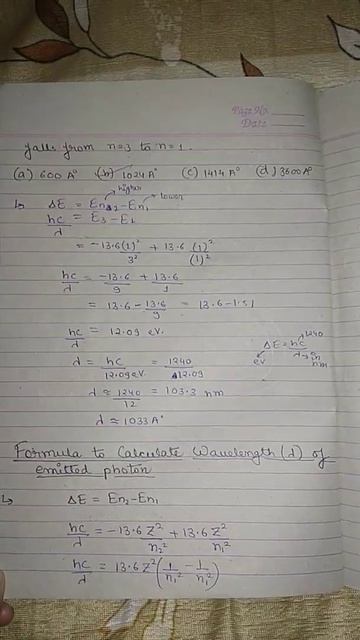 Page No.
Date
falls from n=3 to n=1.
(a) 600 A° (b) 1024 A° (c) 1414 A° (d) 3600 A°
higher
lower
↳ ΔE = En₂ - En₁
hc/λ = E₃ - E₁
= -13.6(1)²/3² + 13.6 (1)²/(1)²
hc/λ = -13.6/9 + 13.6/1
= 13.6 - 13.6/9 = 13.6 - 1.51
hc/λ = 12.09 ev.
ΔE = hc/λ
1240
ev
in nm
λ = hc/12.09ev. = 1240/12.09
λ ≈ 1240/12 = 103.3 nm
λ ≈ 1033 A°
Formula to Calculate Wavelength (λ) of
emitted photon
↳ ΔE = En₂ - En₁
hc/λ = -13.6 Z²/n₂² + 13.6 Z²/n₁²
hc/λ = 13.6 Z² (1/n₁² - 1/n₂²)